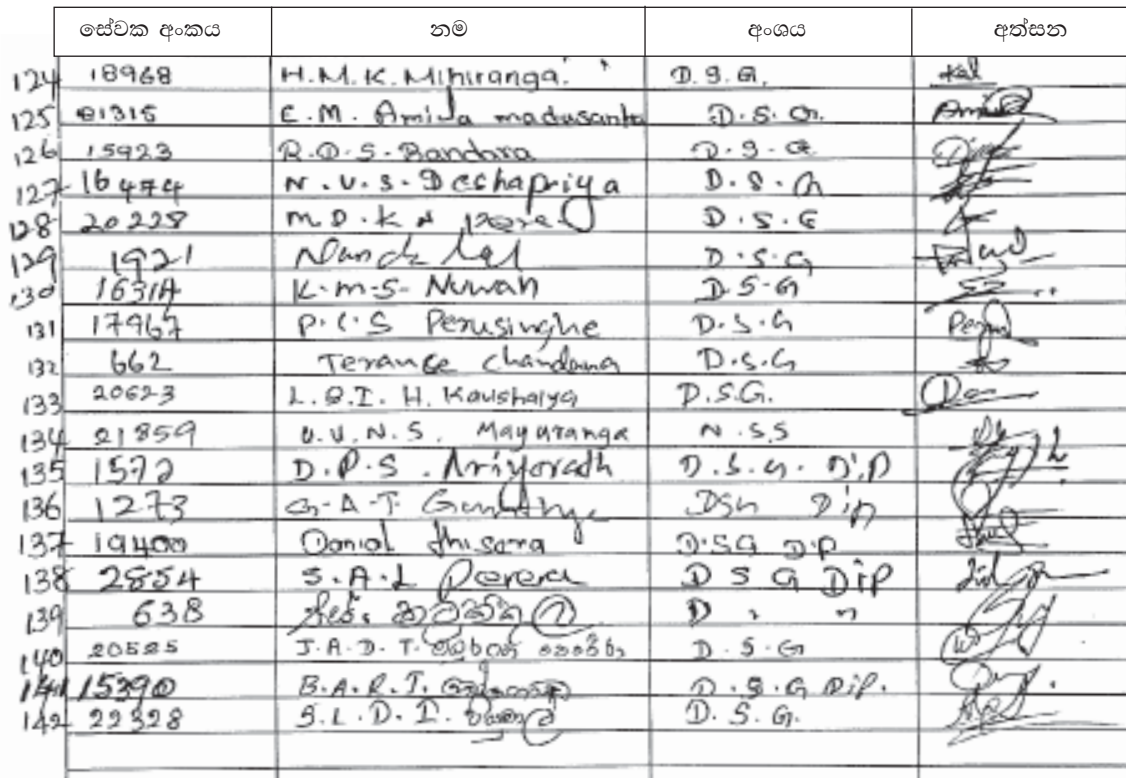 සේවක අංකය නම අංශය අත්සන
124 18968 H.M.K. Mihiranga. D.S.G.
125 01315 E.M. Amila madusanka D.S.G.
126 15923 R.D.S. Bandara D.S.G
127 16474 N.U.S. Deshapriya D.S.G
128 20228 M.D.K N Perera D.S.G
129 1921 Nanda Lal D.S.G
130 16314 K.M.S. Nuwan D.S.G
131 17967 P.C.S Perusinghe D.S.G
132 662 Terance Chandana D.S.G
133 20623 L.B.I. H. Kaushalya D.S.G.
134 21859 U.V.N.S. Mayuranga N.S.S
135 1572 D.P.S. Ariyarath D.S.G. Dip
136 1273 G.A.T. DSG Dip
137 19400 Danial thisara D.S.G DiP
138 2854 S.A.L Perera D S G DiP
139 638 D " "
140 20525 J.A.D.T. පෙරේරා D.S.G
141 15390 B.A.R.I. D.S.G Dip.
142 22328 S.L.D.I. D.S.G.